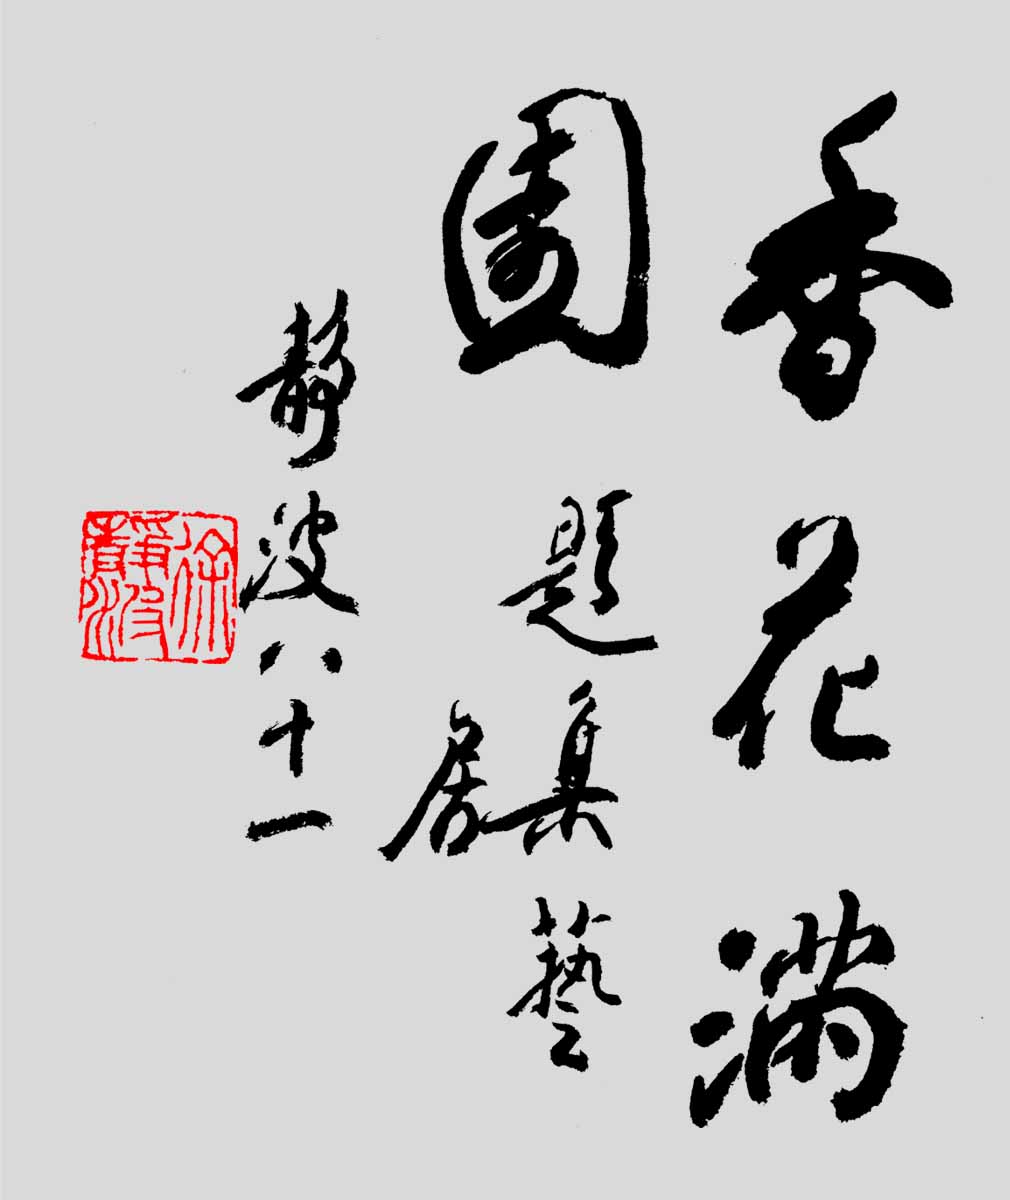 香花滿
園
題集藝
居
靜波八十一
徐靜波